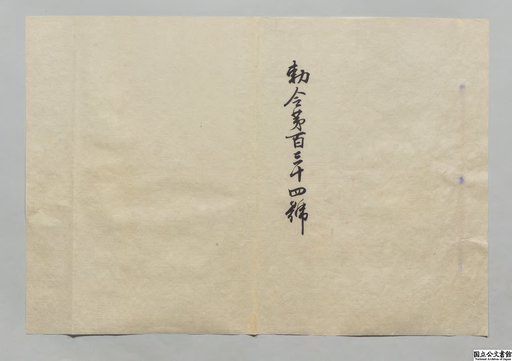 勅令第百三十四號
国立公文書館
National Archives of Japan